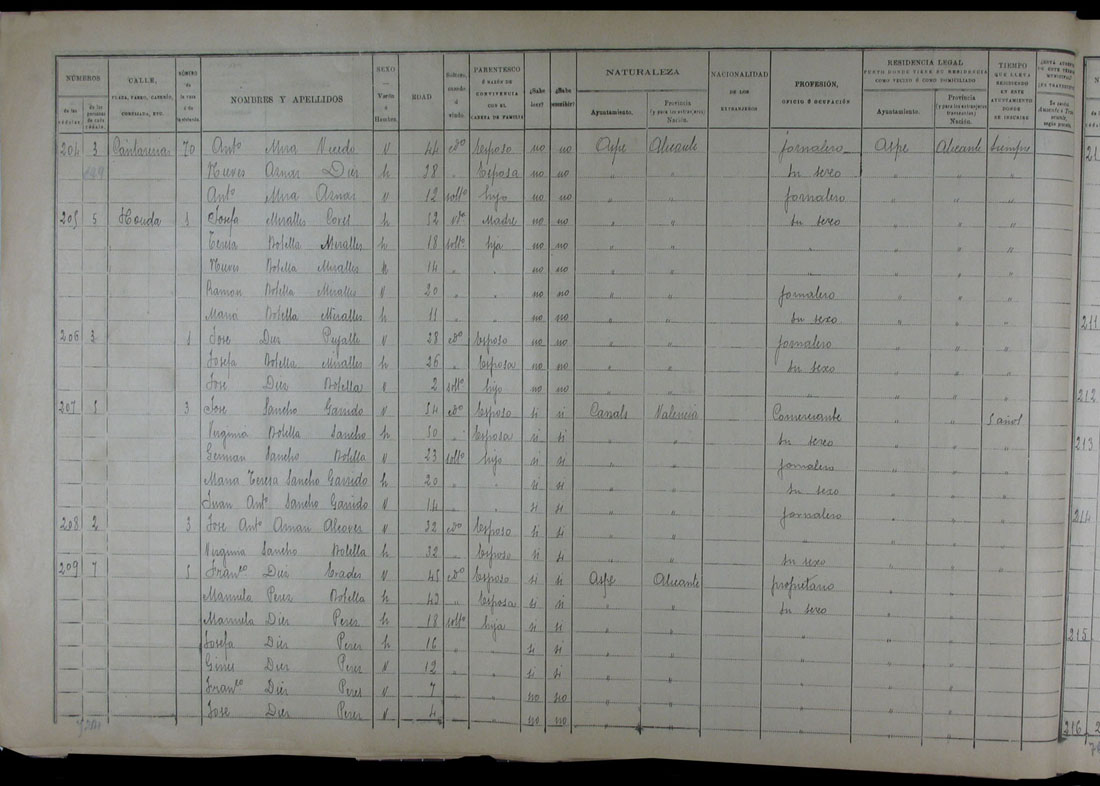 NÚMEROS
de las cédulas
de las personas de cada cédula.
CALLE,
PLAZA, PASEO, CASERÍO,
NÚMERO de la casa
NOMBRES Y APELLIDOS
SEXO
Varón
ó
Hembra.
EDAD
Soltero,
casado
ó
viudo.
PARENTESCO
Ó RAZÓN DE
CONVIVENCIA
CON EL
CABEZA DE FAMILIA
¿Sabe leer?
¿Sabe escribir?
NATURALEZA
Ayuntamiento.
Provincia
(y para los extranjeros)
Nación.
NACIONALIDAD
DE LOS
EXTRANJEROS
PROFESIÓN,
OFICIO Ó OCUPACIÓN
RESIDENCIA LEGAL
PUNTO DONDE TIENE SU RESIDENCIA
COMO VECINO Ó COMO DOMICILIADO
Ayuntamiento.
Provincia
(y para los extranjeros transeuntes)
Nación.
TIEMPO
QUE LLEVA
RESIDIENDO
EN ESTE
AYUNTAMIENTO
DONDE
SE INSCRIBE
204 3 70 Antº Mira v 44 cdº Esposo no no Aspe Alicante jornalero Aspe Alicante Siempre
Nieves Aznar Dies h 38 " Esposa no no " " Su sexo " " "
Antº Mira Aznar v 12 soltº hijo no no " " jornalero " " "
205 5 Honda 1 Josefa Miralles h 52 vdª Madre no no " " Su sexo " " "
Teresa Botella Miralles h 18 soltº hija no no " " " " " "
Nieves Botella Miralles h 14 " " no no " " " " " "
Ramon Botella Miralles v 20 " " no no " " jornalero " " "
Maria Botella Miralles h 11 " " no no " " Su sexo " " "
206 3 1 Jose Dies v 28 cdº Esposo no no " " jornalero " " "
Josefa Botella Miralles h 26 " Esposa no no " " Su sexo " " "
Jose Dies Botella v 2 soltº hijo no no " " " " " "
207 5 3 Jose Sancho Garrido v 54 cdº Esposo si si Canals Valencia Comerciante " " 5 años
Virginia Botella Sancho h 50 " Esposa si si " " Su sexo " " "
German Sancho Botella v 23 soltº hijo si si " " jornalero " " "
Maria Teresa Sancho Garrido h 20 " " si si " " Su sexo " " "
Juan Antº Sancho Garrido v 14 " " si si " " jornalero " " "
208 2 3 Jose Antº Aznar v 32 cdº Esposo si si " " " " " "
Virginia Sancho Botella h 32 " Esposo si si " " Su sexo " " "
209 7 5 Franco Dies v 45 cdº Esposo si si Aspe Alicante propietario " " "
Manuela Peres Botella h 43 " Esposa si si " " Su sexo " " "
Manuela Dies Peres h 18 soltº hija si si " " " " " "
Josefa Dies Peres h 16 " " si si " " " " " "
Gines Dies Peres v 12 " " si si " " " " " "
Franco Dies Peres v 7 " " no no " " " " " "
Jose Dies Peres v 4 " " no no " " " " " "
21
211
212
213
214
215
216